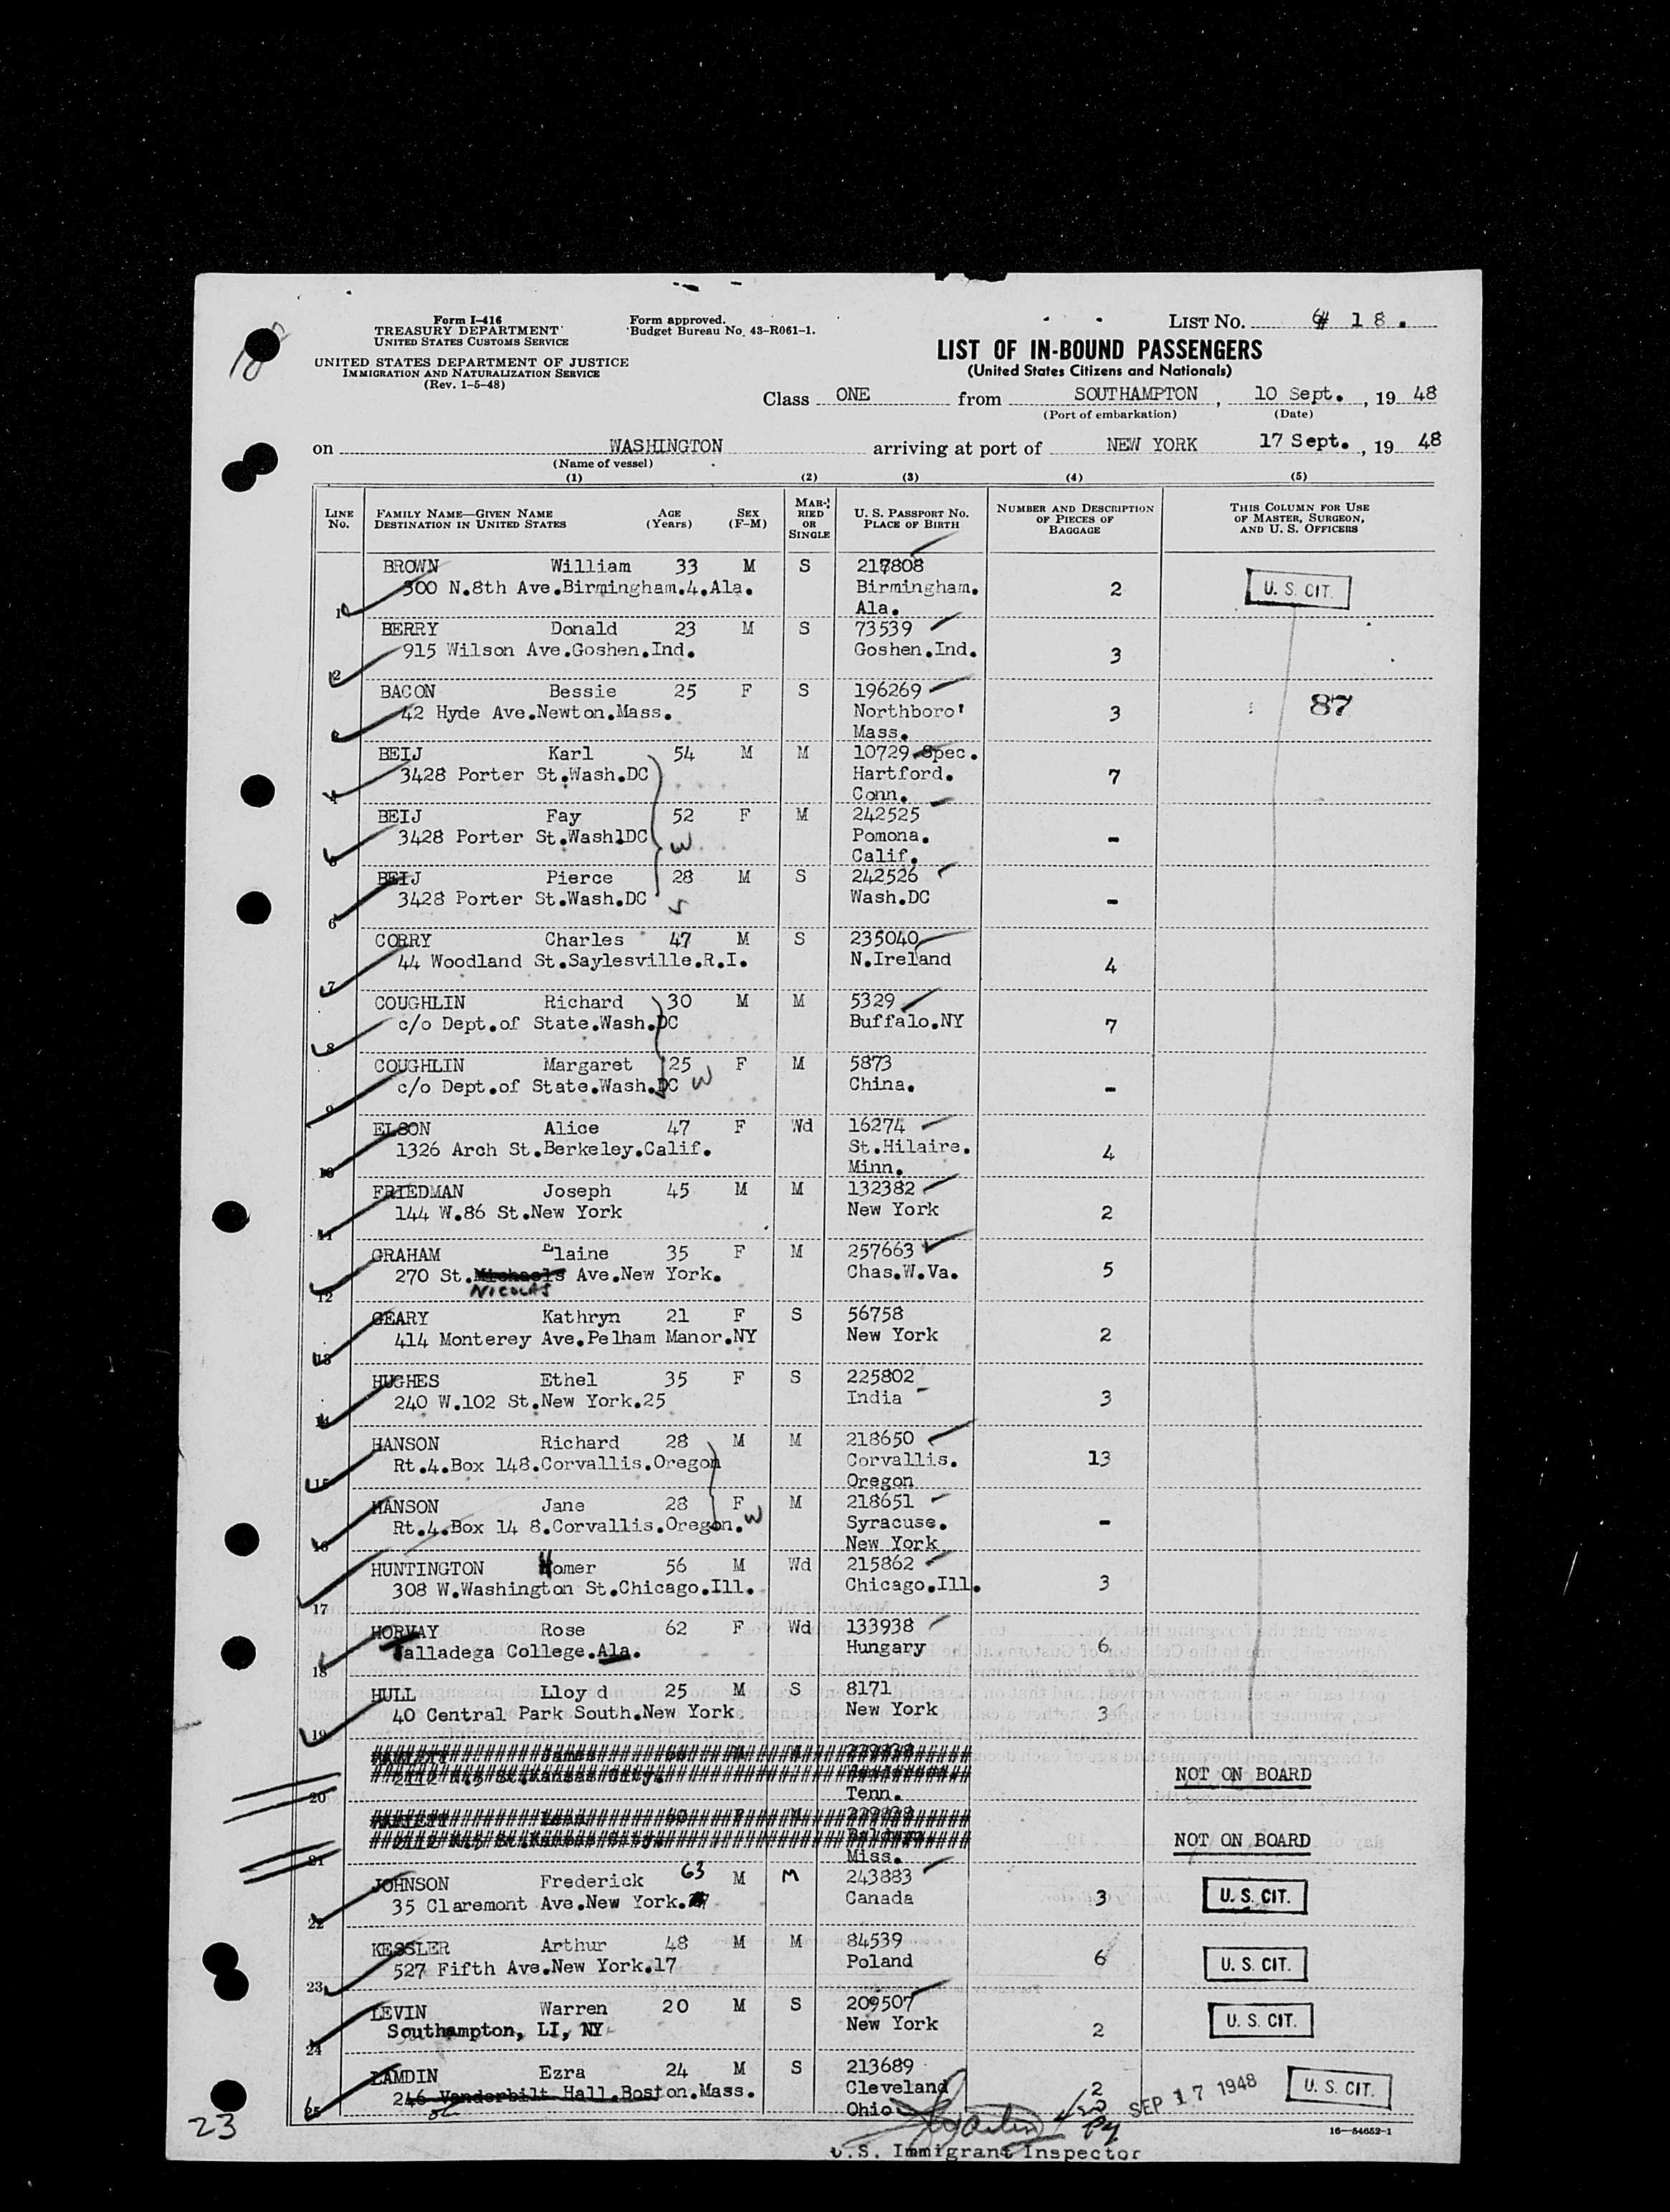 Form I-416
TREASURY DEPARTMENT
UNITED STATES CUSTOMS SERVICE
UNITED STATES DEPARTMENT OF JUSTICE
IMMIGRATION AND NATURALIZATION SERVICE
(Rev. 1-5-48)
Form approved.
Budget Bureau No. 43-R061-1.
LIST NO. # 18.
LIST OF IN-BOUND PASSENGERS
(United States Citizens and Nationals)
Class ONE from SOUTHAMPTON, 10 Sept., 19 48
(Port of embarkation) (Date)
on WASHINGTON arriving at port of NEW YORK 17 Sept., 19 48
(Name of vessel)
(1) (2) (3) (4) (5)
LINE NO.
FAMILY NAME—GIVEN NAME DESTINATION IN UNITED STATES
AGE (Years)
SEX (F-M)
MARRIED OR SINGLE
U. S. PASSPORT NO. PLACE OF BIRTH
NUMBER AND DESCRIPTION OF PIECES OF BAGGAGE
THIS COLUMN FOR USE OF MASTER, SURGEON, AND U. S. OFFICERS
BROWN William 33 M S 217808
300 N.8th Ave.Birmingham.4.Ala. Birmingham. 2 U. S. CIT.
1 Ala.
BERRY Donald 23 M S 73539
915 Wilson Ave.Goshen.Ind. Goshen.Ind. 3
2
BACON Bessie 25 F S 196269
42 Hyde Ave.Newton.Mass. Northboro' 3 87
3 Mass.
BEIJ Karl 54 M M 10729 Spec.
3428 Porter St.Wash.DC Hartford. 7
4 Conn.
BEIJ Fay 52 F M 242525
3428 Porter St.Wash1DC W Pomona. -
5 Calif.
BEIJ Pierce 28 M S 242526
3428 Porter St.Wash.DC S Wash.DC -
6
CORRY Charles 47 M S 235040
44 Woodland St.Saylesville.R.I. N.Ireland 4
7
COUGHLIN Richard 30 M M 5329
c/o Dept.of State.Wash.DC Buffalo.NY 7
8
COUGHLIN Margaret 25 F M 5873
c/o Dept.of State.Wash.DC W China. -
9
ELSON Alice 47 F Wd 16274
1326 Arch St.Berkeley.Calif. St.Hilaire. 4
10 Minn.
FRIEDMAN Joseph 45 M M 132382
144 W.86 St.New York New York 2
11
GRAHAM Elaine 35 F M 257663
270 St.Michaels Ave.New York. Chas.W.Va. 5
NICOLAS
12
GEARY Kathryn 21 F S 56758
414 Monterey Ave.Pelham Manor.NY New York 2
13
HUGHES Ethel 35 F S 225802
240 W.102 St.New York.25 India 3
14
HANSON Richard 28 M M 218650
Rt.4.Box 148.Corvallis.Oregon Corvallis. 13
15 Oregon
HANSON Jane 28 F M 218651
Rt.4.Box 14 8.Corvallis.Oregon. W Syracuse. -
16 New York
HUNTINGTON Homer 56 M Wd 215862
308 W.Washington St.Chicago.Ill. Chicago.Ill. 3
17
HORVAY Rose 62 F Wd 133938
Talladega College.Ala. Hungary 6
18
HULL Lloyd 25 M S 8171
40 Central Park South.New York New York 3
19
James M
2112 N.5 St.Kansas City. NOT ON BOARD
20 Tenn.
2112 N.5 St.Kansas City. NOT ON BOARD
21 Miss.
JOHNSON Frederick 63 M M 243883
35 Claremont Ave.New York. Canada 3 U. S. CIT.
22
KESSLER Arthur 48 M M 84539
527 Fifth Ave.New York.17 Poland 6 U. S. CIT.
23
LEVIN Warren 20 M S 209507
Southampton, LI, NY New York 2 U. S. CIT.
24
LAMDIN Ezra 24 M S 213689
246 Vanderbilt Hall.Boston.Mass. Cleveland 2 SEP 17 1948 U. S. CIT.
25 Ohio
23
16—54652-1
U.S. Immigrant Inspector